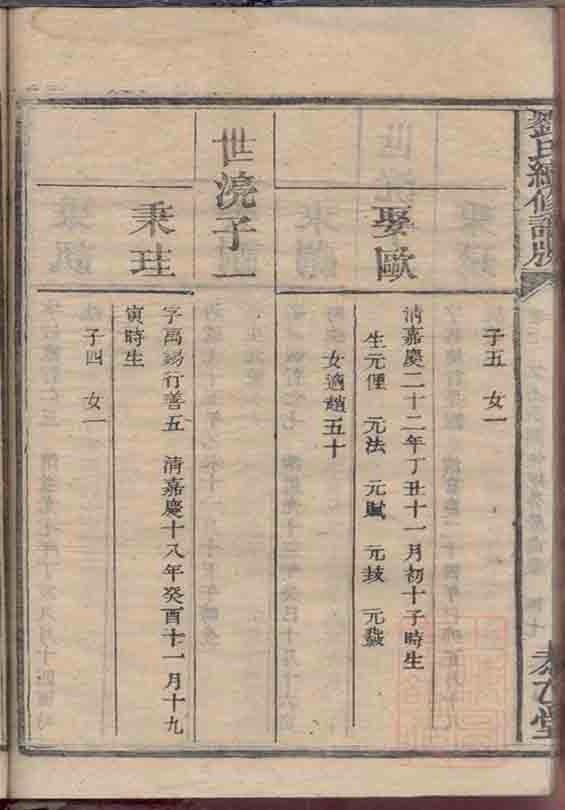 劉氏續修譜牒
太乙堂
子五 女一
娶歐
清嘉慶二十二年丁丑十一月初十子時生
生元俚 元法 元賦 元封 元黻
女適趙五十
世澆子一
秉珪
字萬錫行善五 清嘉慶十八年癸酉十一月十九
寅時生
子四 女一